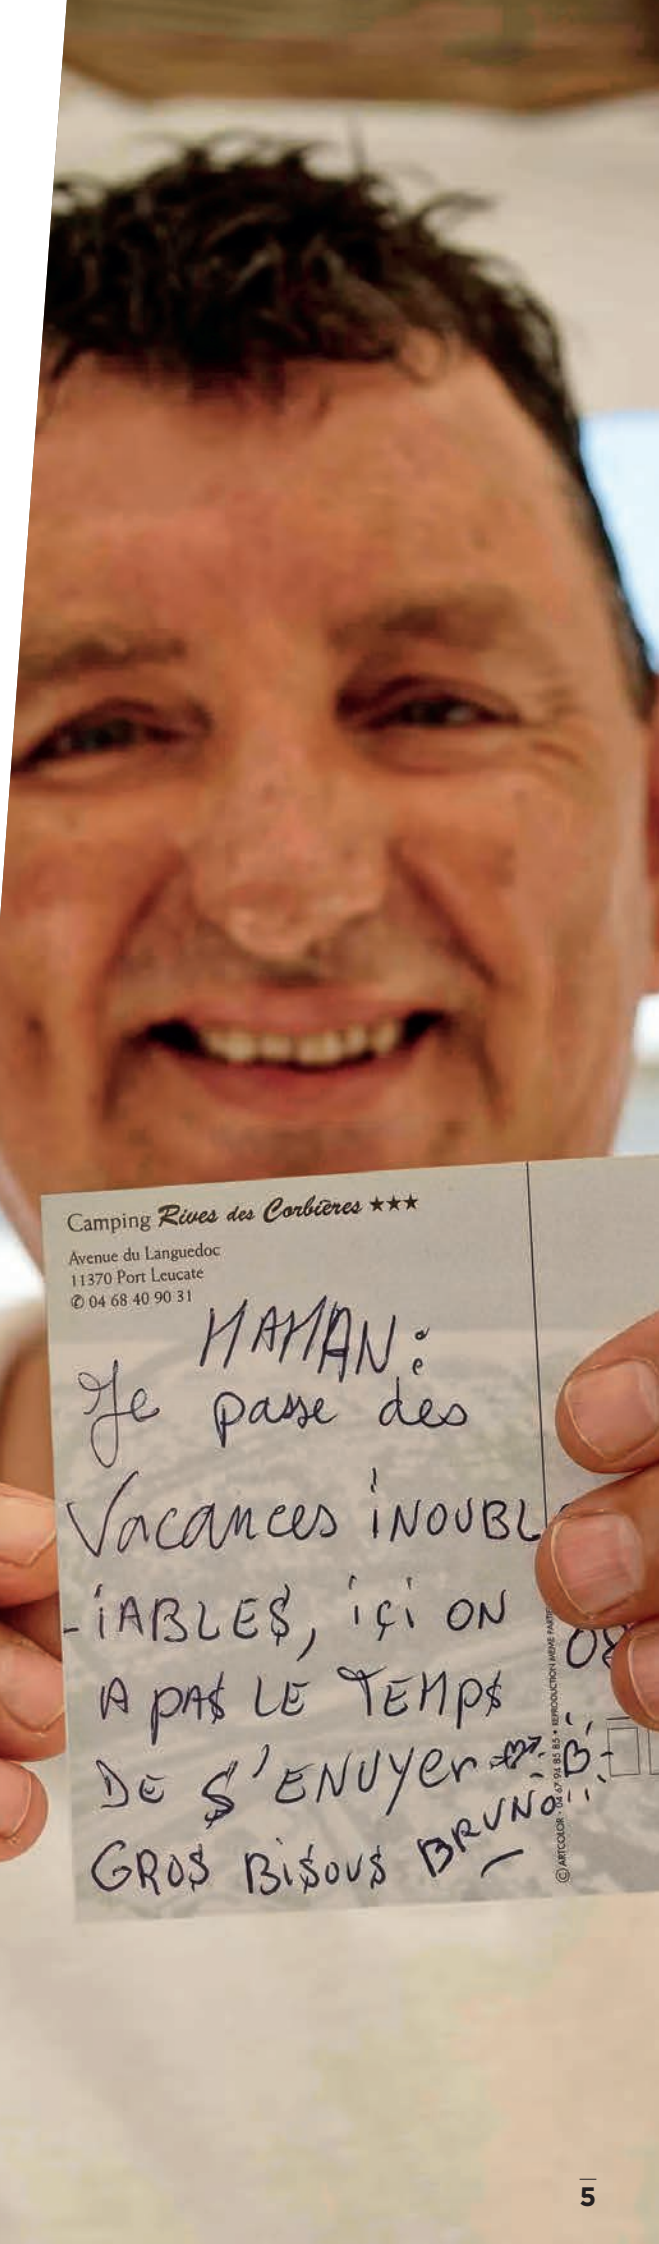 Camping Rives des Corbières ★★★
Avenue du Languedoc
11370 Port Leucate
✆ 04 68 40 90 31
MAMAN :
Je passe des
Vacances iNOUBL
-iABLES, içi ON
A PAS LE TEMPS
DE S'ENUYer
GROS BiSOUS BRUNO
B
© ARTCOLOR - 04 67 94 85 85 • REPRODUCTION MEME PARTIE
08
5